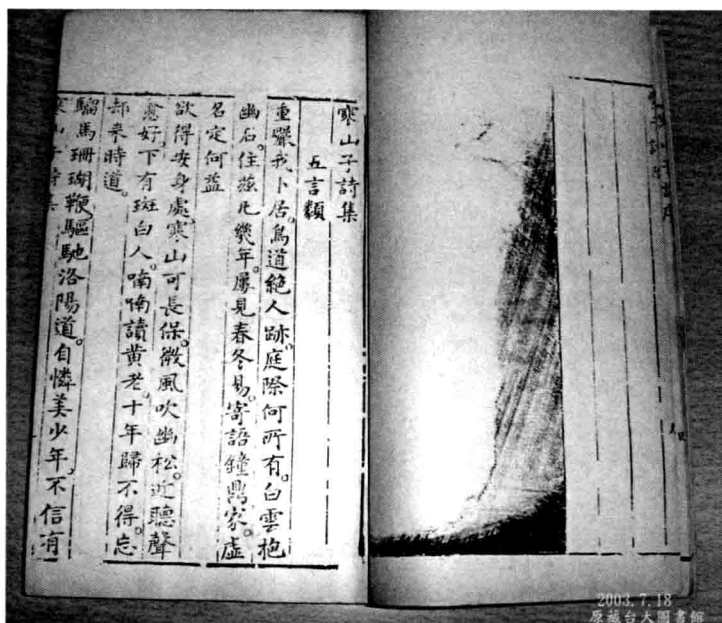 寒山子詩集
五言類
重巖我卜居。鳥道絕人跡。庭除何所有。白雲抱
幽石。住茲凡幾年。屢見春冬易。寄語鐘鼎家。虛
名定何益
欲得安身處。寒山可長保。微風吹幽松。近聽聲
愈好。下有斑白人。喃喃讀黃老。十年歸不得。忘
却来時道。
騮馬珊瑚鞭。驅馳洛陽道。自憐美少年。不信有
寒山子詩集
2003.7.18
原藏台大圖書館